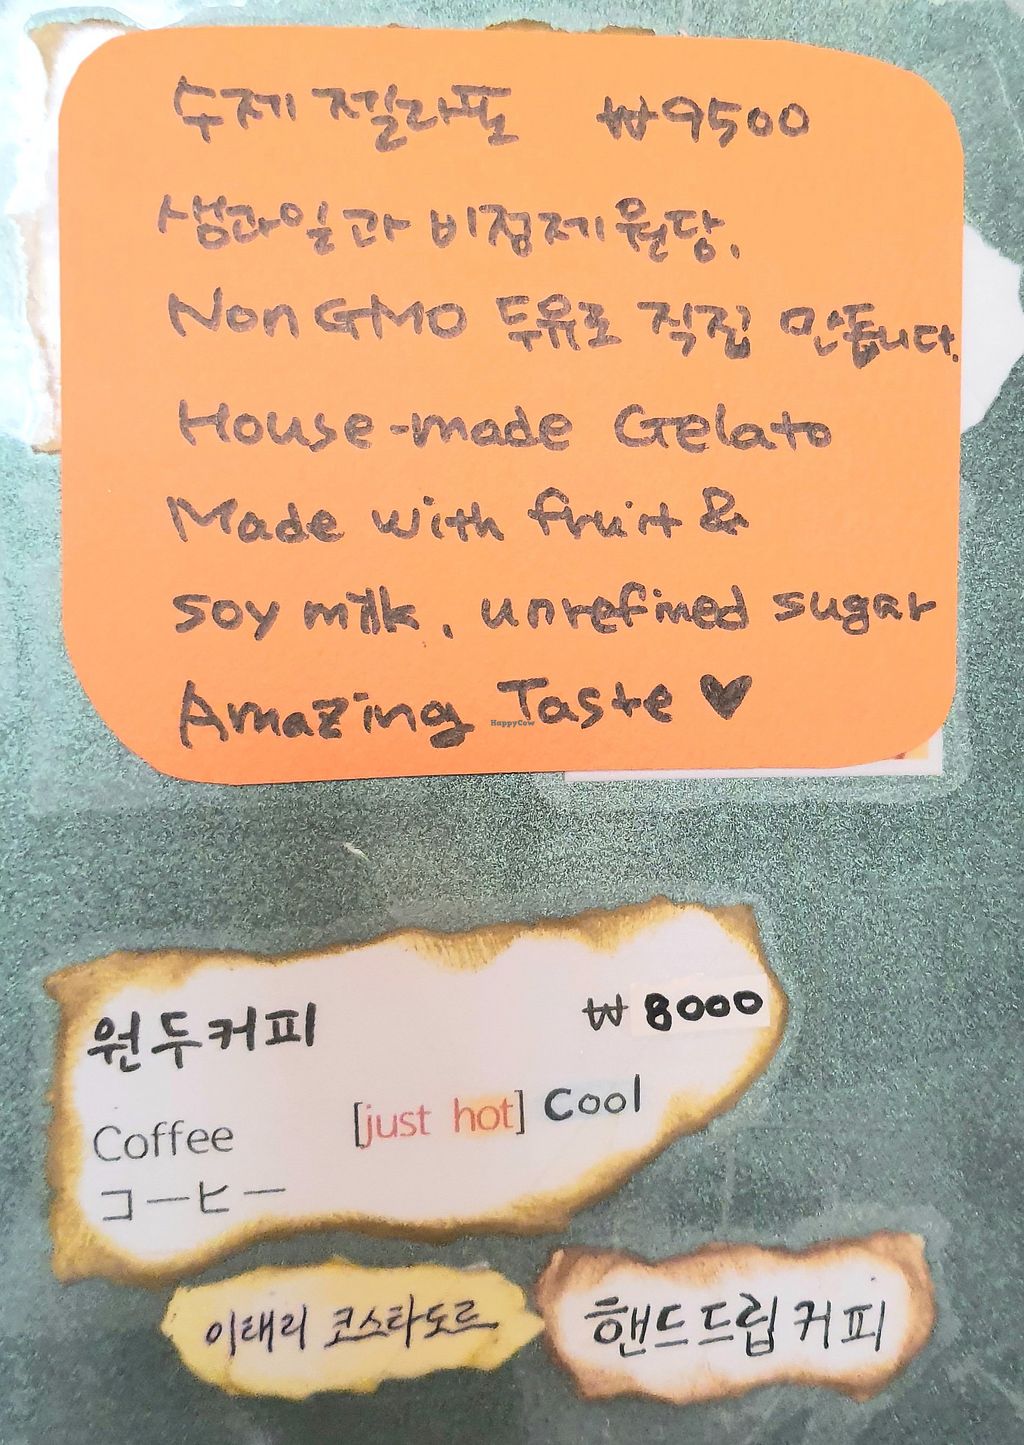 수제 젤라또 ₩9500
생과일과 비정제원당,
Non GMO 두유로 직접 만듭니다.
House-made Gelato
Made with fruit &
soy milk, unrefined sugar
Amazing Taste ♥
HappyCow
원두커피 ₩ 8000
Coffee [just hot] Cool
コーヒー
이태리 코스타도르
핸드드립커피